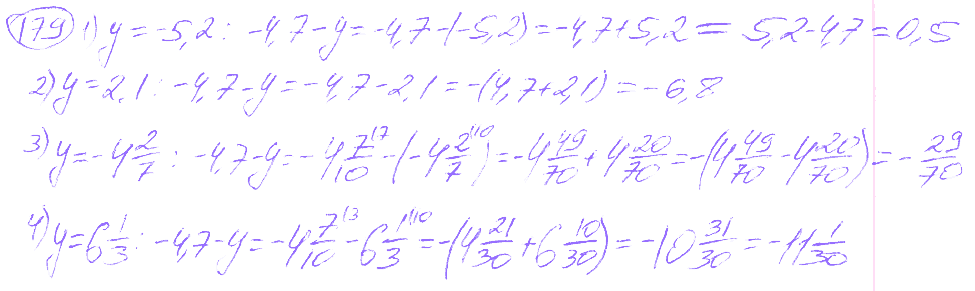 179 1) y = -5,2: -4,7-y = -4,7-(-5,2) = -4,7+5,2 = 5,2-4,7 = 0,5
2) y = 2,1: -4,7-y = -4,7-2,1 = -(4,7+2,1) = -6,8
3) y = -4 2/7: -4,7-y = -4 7/10 ^(7 - (-4 2/7 ^(10) = -4 49/70 + 4 20/70 = -(4 49/70 - 4 20/70) = -29/70
4) y = 6 1/3: -4,7-y = -4 7/10 ^(3 - 6 1/3 ^(10 = -(4 21/30 + 6 10/30) = -10 31/30 = -11 1/30